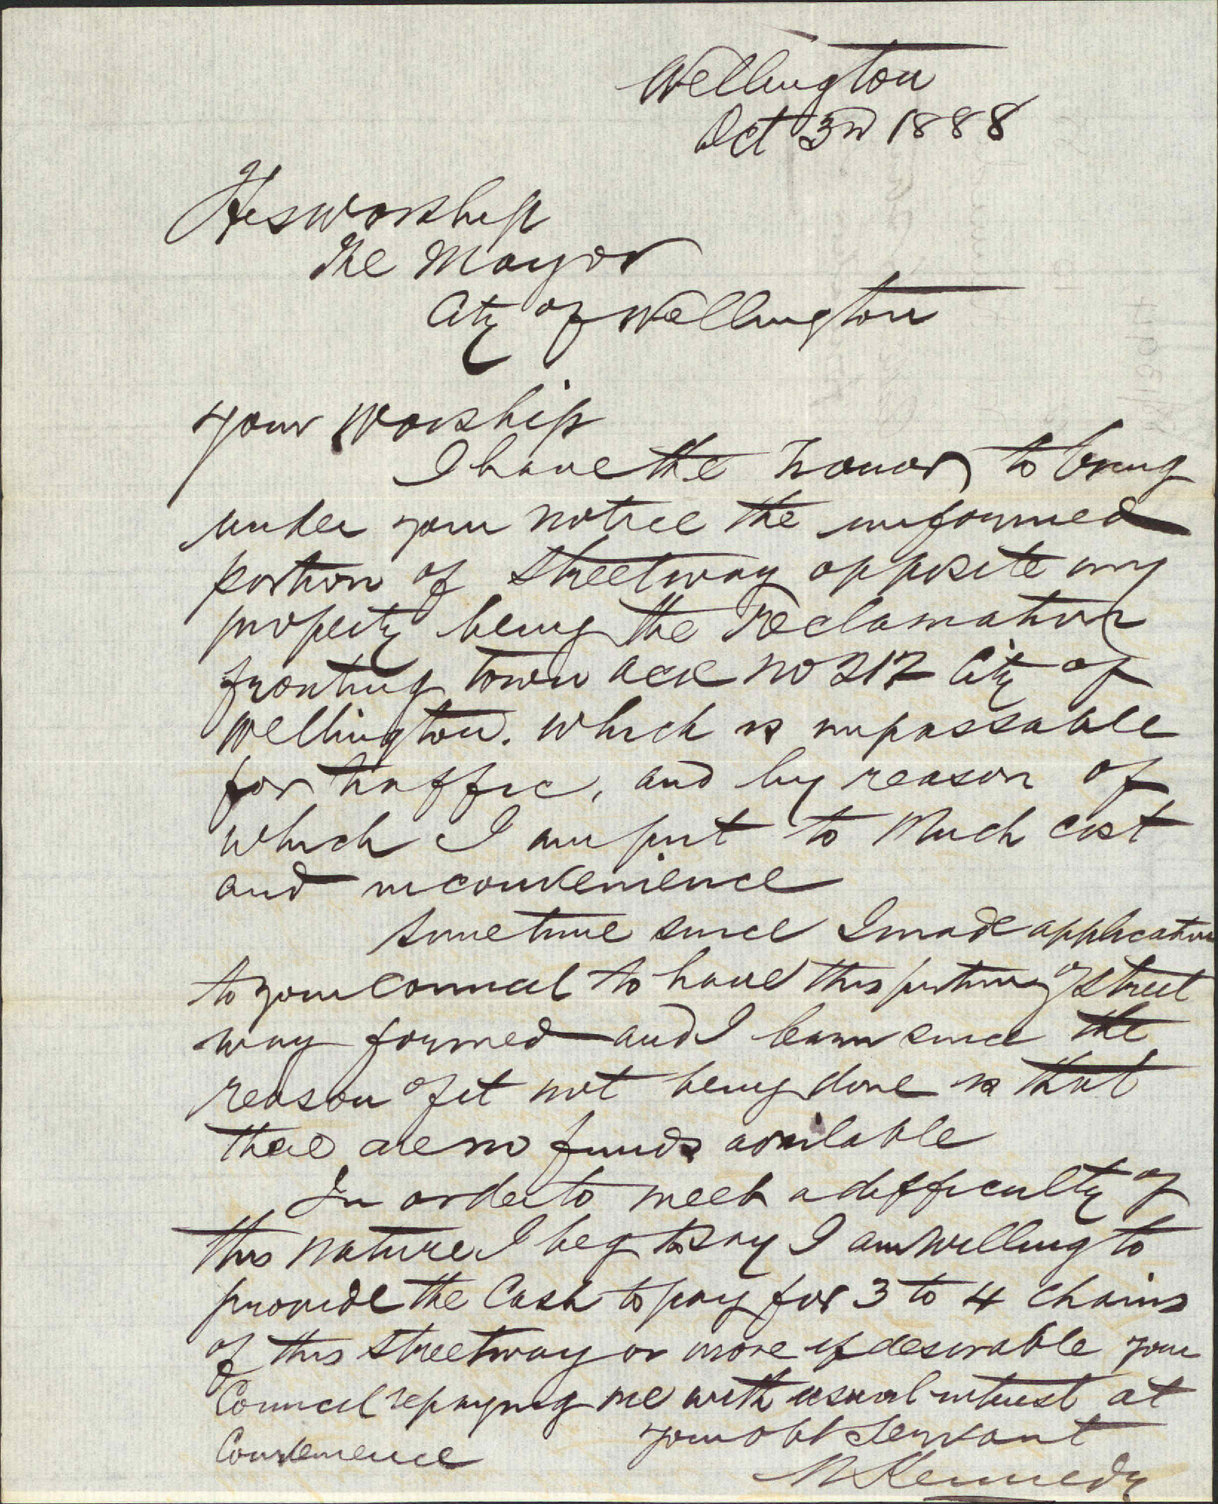 Wellington
Oct 3rd 1888
His Worship
The Mayor
City of Wellington
Your Worship
I have the honor to bring
under your notice the unformed
portion of streetway opposite my
property being the reclamation
fronting town acre no 217 City of
Wellington. which is impassable
for traffic, and by reason of
which I am put to Much cost
and inconvenience
Sometime since I made application
to your Council to have this portion of street
way formed and I learn since the
reason of it not being done is that
there are no funds available
In order to meet a difficulty of
this nature I beg to say I am willing to
provide the Cash to pay for 3 to 4 chains
of this streetway or more if desirable your
Council repaying me with usual interest at
Convenience your obt Servant
M Kennedy